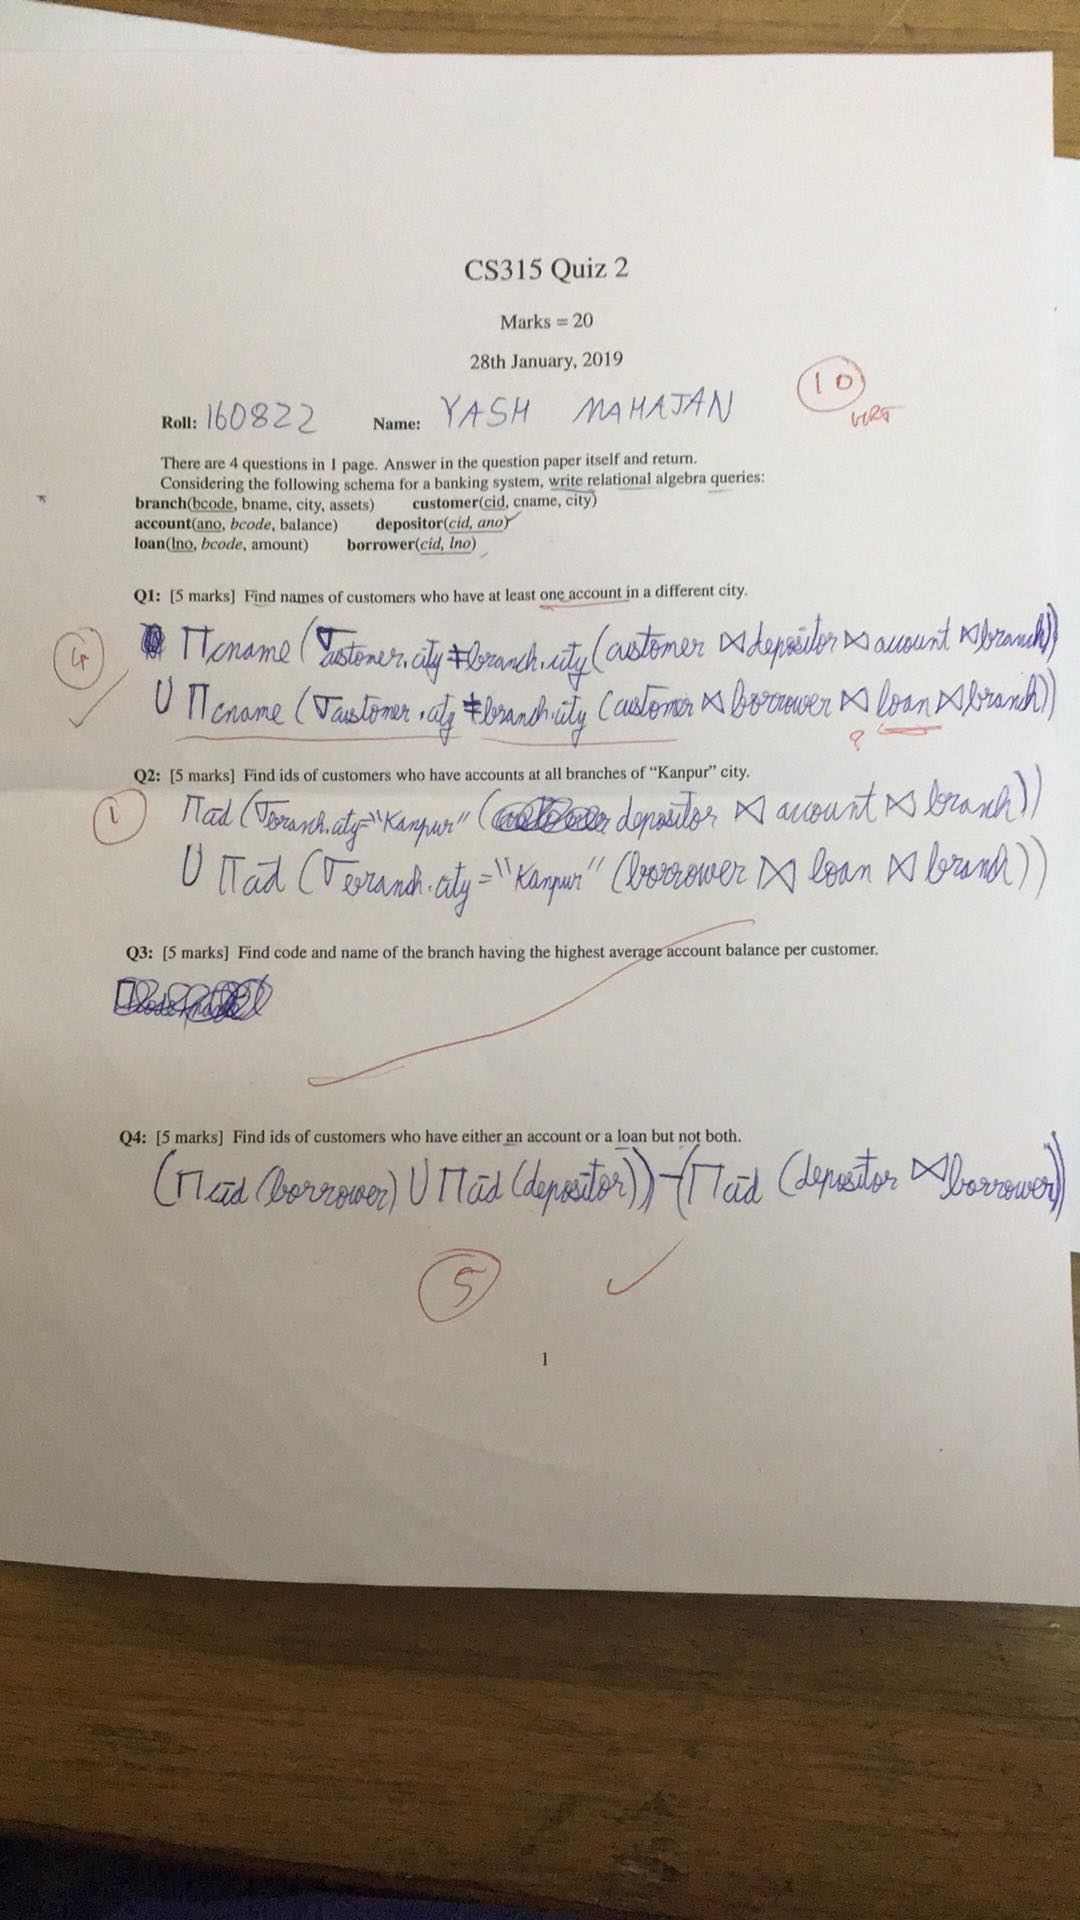 CS315 Quiz 2
Marks = 20
28th January, 2019
10
Roll: 160822 Name: YASH MAHAJAN
There are 4 questions in 1 page. Answer in the question paper itself and return.
Considering the following schema for a banking system, write relational algebra queries:
branch(bcode, bname, city, assets) customer(cid, cname, city)
account(ano, bcode, balance) depositor(cid, ano)
loan(lno, bcode, amount) borrower(cid, lno)
Q1: [5 marks] Find names of customers who have at least one account in a different city.
4
Πcname (σcustomer.city≠branch.city (customer ⋈ depositor ⋈ account ⋈ branch))
∪ Πcname (σcustomer.city ≠ branch.city (customer ⋈ borrower ⋈ loan ⋈ branch))
?
Q2: [5 marks] Find ids of customers who have accounts at all branches of “Kanpur” city.
1
Πcid (σbranch.city="Kanpur" (depositor ⋈ account ⋈ branch))
∪ Πcid (σbranch.city="Kanpur" (borrower ⋈ loan ⋈ branch))
Q3: [5 marks] Find code and name of the branch having the highest average account balance per customer.
Q4: [5 marks] Find ids of customers who have either an account or a loan but not both.
(Πcid (borrower) ∪ Πcid (depositor)) - (Πcid (depositor ⋈ borrower))
5
1